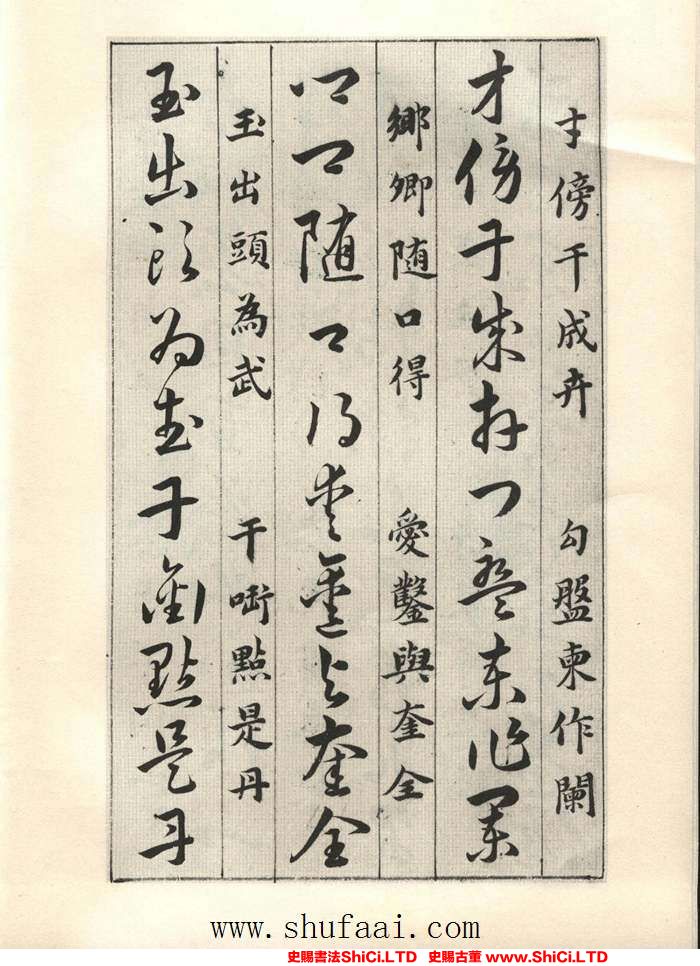 才傍千成卉 勾盤柬作闌
才傍千成卉勾盤柬作闌
鄉卿随口得 愛鑿與奎全
鄉卿随口得愛鑿與奎全
玉出頭為武 干啣點是丹
玉出頭為武干啣點是丹
www.shufaai.com
史賜書法ShiCi.LTD 史賜古董 www.ShiCi.LTD